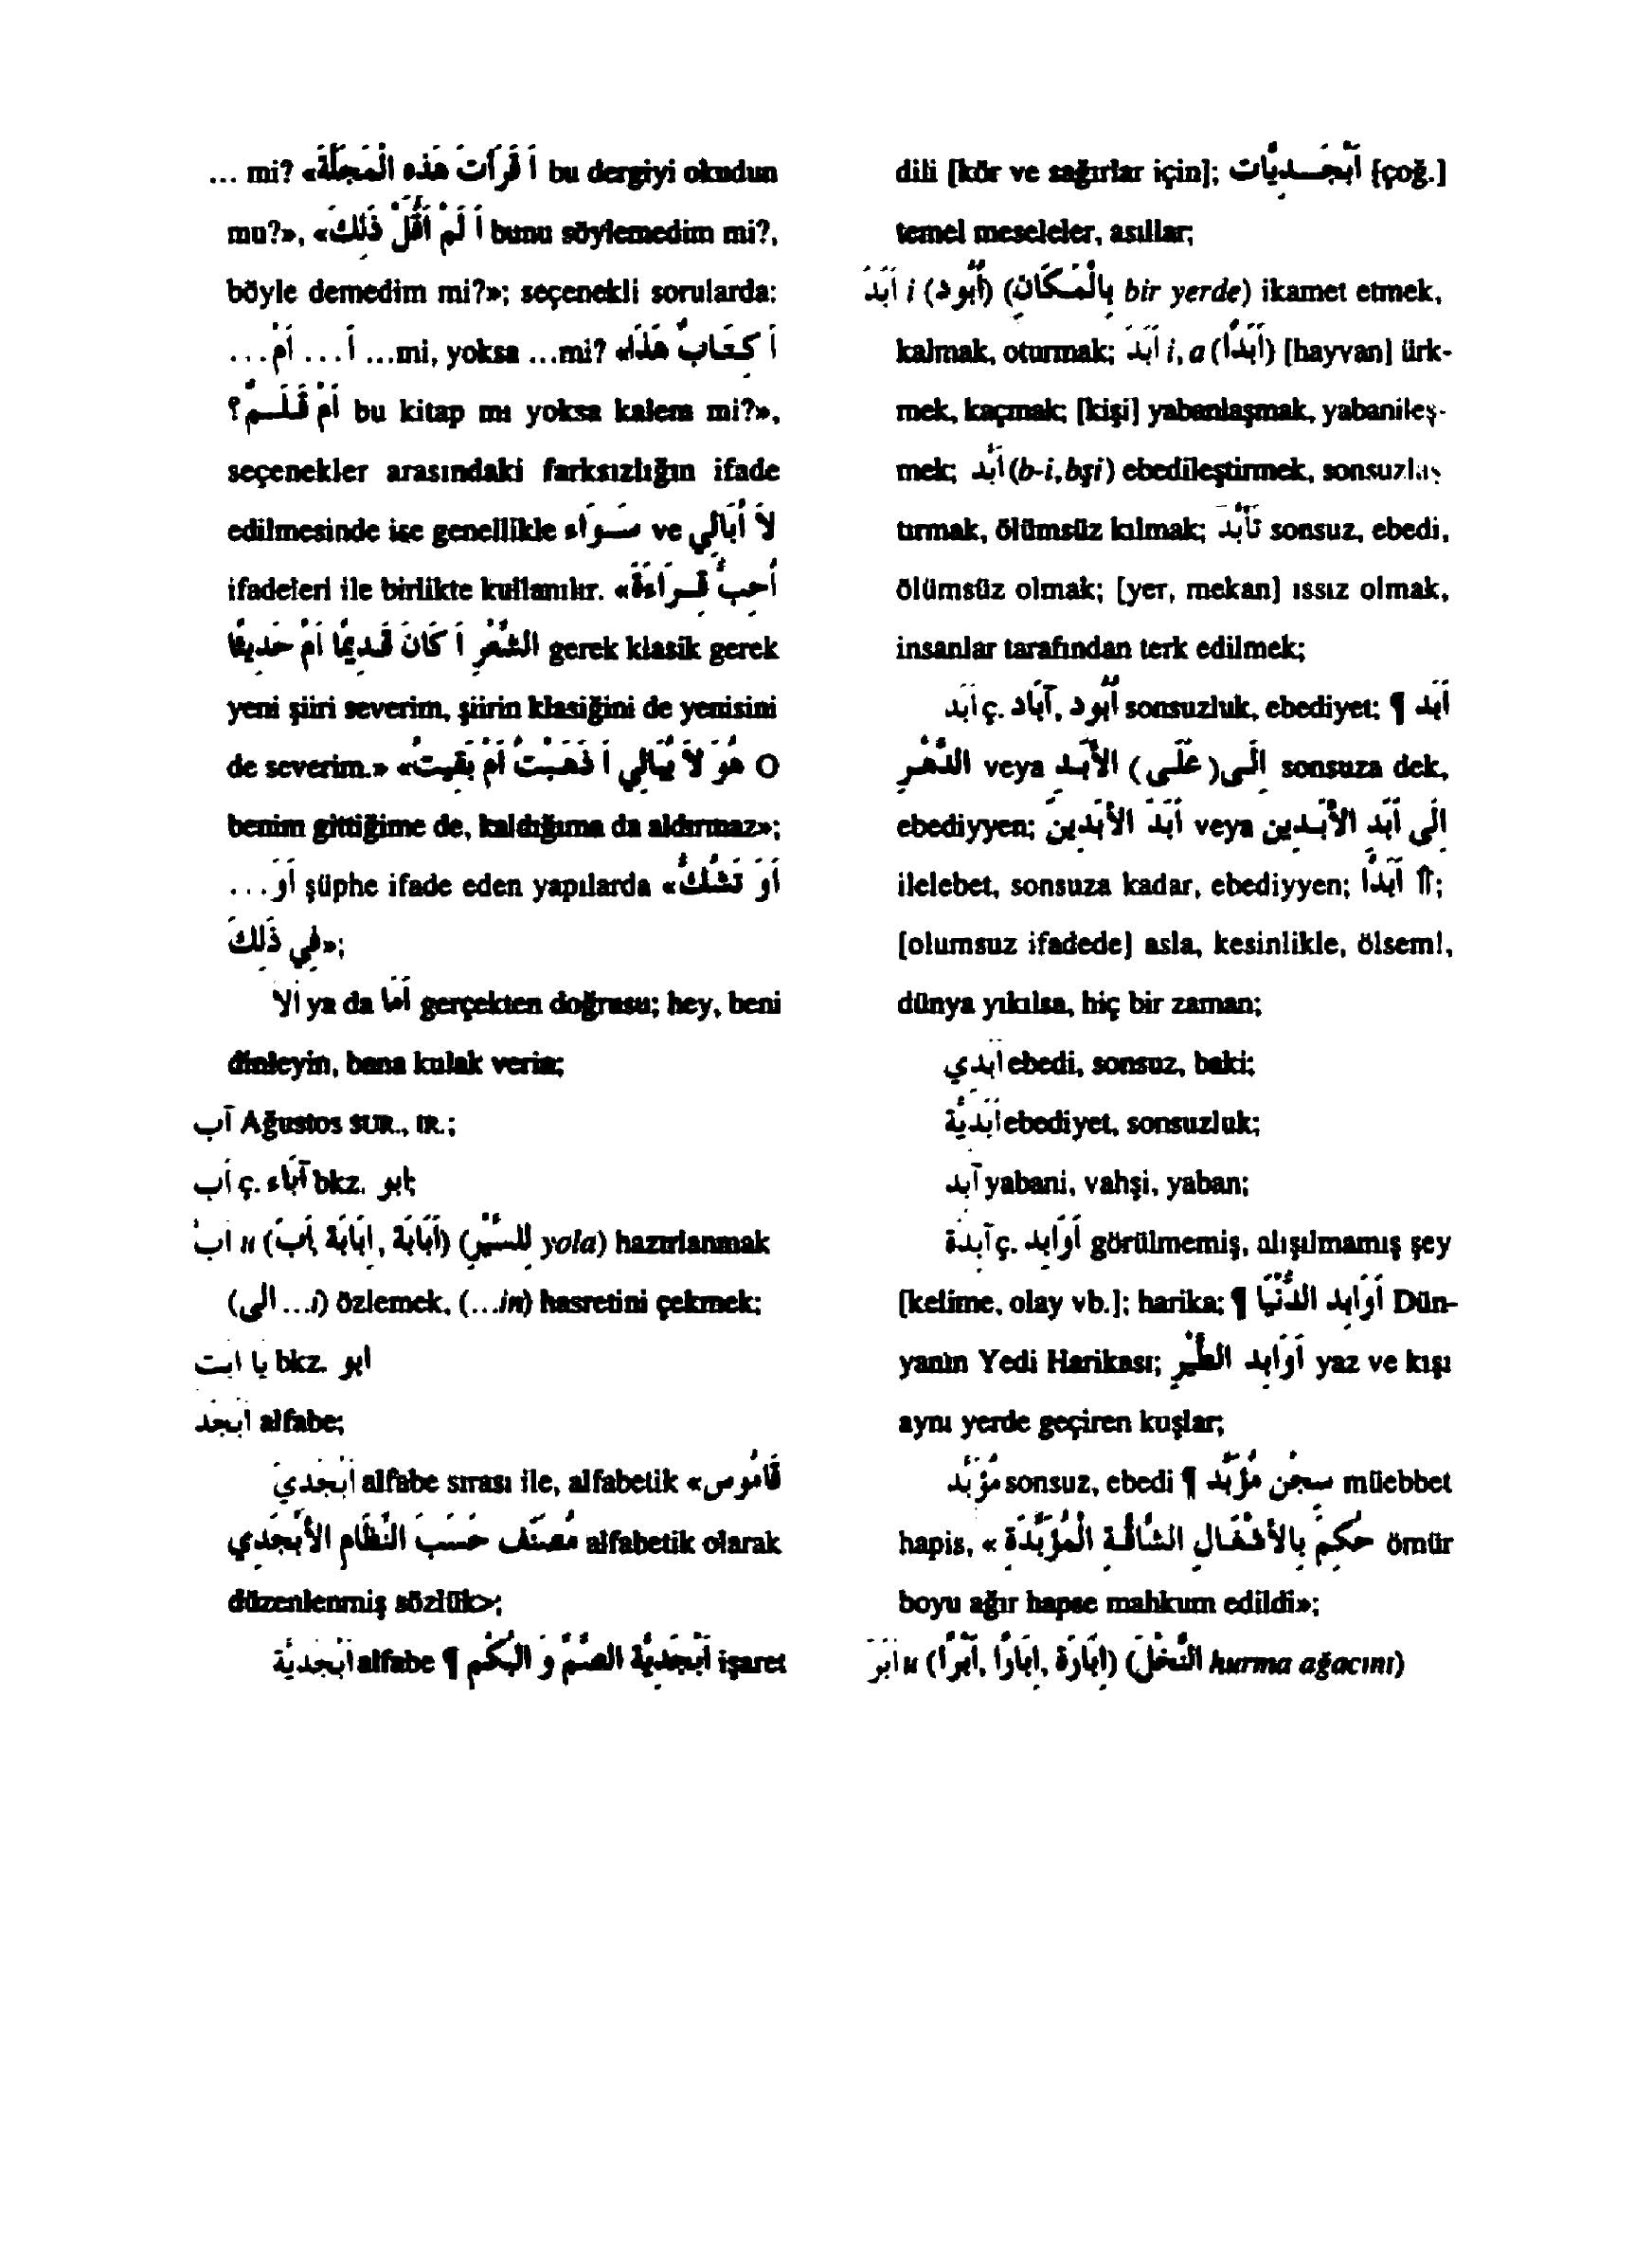 ... mi? «أَ قَرَأْتَ هَذِهِ الْمَجَلَّةَ bu dergiyi okudun
mu?», «أَ لَمْ أَقُلْ ذَلِكَ bunu söylemedim mi?,
böyle demedim mi?»; seçenekli sorularda:
أَ... أَمْ... ...mi, yoksa ...mi? «أَ كِتَابٌ هَذَا
أَمْ قَلَمٌ؟ bu kitap mı yoksa kalem mi?»,
seçenekler arasındaki farksızlığın ifade
edilmesinde ise genellikle سَوَاء ve لاَ أُبَالِي
ifadeleri ile birlikte kullanılır. «أُحِبُّ قِرَاءَةَ
الشِّعْرِ أَ كَانَ قَدِيمًا أَمْ حَدِيثًا gerek klasik gerek
yeni şiiri severim, şiirin klasiğini de yenisini
de severim.» «هُوَ لاَ يُبَالِي أَ ذَهَبْتُ أَمْ بَقِيتُ O
benim gittiğime de, kaldığıma da aldırmaz»;
أَوَ... şüphe ifade eden yapılarda «أَوَ تَشُكُّ
فِي ذَلِكَ»;
أَلاَ ya da أَمَا gerçekten doğrusu; hey, beni
dinleyin, bana kulak verin;
آب Ağustos SUR., IR.;
أَب ç. آبَاء bkz. ابو;
أَبَّ u (أَبّ, أَبَابَة, إِبَابَة) (لِلسَّيْرِ yola) hazırlanmak
(الى ...i) özlemek, (...in) hasretini çekmek;
يا ابت bkz. ابو
أَبْجَد alfabe;
أَبْجَدِيّ alfabe sırası ile, alfabetik «قَامُوس
مُصَنَّف حَسَبَ النِّظَامِ الأَبْجَدِي alfabetik olarak
düzenlenmiş sözlük»;
أَبْجَدِيَّة alfabe ¶ أَبْجَدِيَّة الصُّمِّ وَ الْبُكْمِ işaret
dili [kör ve sağırlar için]; أَبْجَدِيَّات [çoğ.]
temel meseleler, asıllar;
أَبَدَ i (أُبُود) (بِالْمَكَانِ bir yerde) ikamet etmek,
kalmak, oturmak; أَبَدَ i, a (أَبَدًا) [hayvan] ürk-
mek, kaçmak; [kişi] yabanlaşmak, yabanileş-
mek; أَبَّدَ (b-i, bşi) ebedileştirmek, sonsuzlaş
tırmak, ölümsüz kılmak; تَأَبَّدَ sonsuz, ebedi,
ölümsüz olmak; [yer, mekan] ıssız olmak,
insanlar tarafından terk edilmek;
أَبَد ç. آبَاد, أُبُود sonsuzluk, ebediyet; ¶ أَبَد
الدَّهْرِ veya إِلَى (عَلَى) الأَبَدِ sonsuza dek,
ebediyyen; أَبَدَ الأَبَدِينَ veya إِلَى أَبَدِ الأَبَدِين
ilelebet, sonsuza kadar, ebediyyen; أَبَدًا ⇑;
[olumsuz ifadede] asla, kesinlikle, ölsem!,
dünya yıkılsa, hiç bir zaman;
أَبَدِي ebedi, sonsuz, baki;
أَبَدِيَّة ebediyet, sonsuzluk;
آبِد yabani, vahşi, yaban;
آبِدَة ç. أَوَابِد görülmemiş, alışılmamış şey
[kelime, olay vb.]; harika; ¶ أَوَابِد الدُّنْيَا Dün-
yanın Yedi Harikası; أَوَابِد الطَّيْرِ yaz ve kışı
aynı yerde geçiren kuşlar;
مُؤَبَّد sonsuz, ebedi ¶ سِجْن مُؤَبَّد müebbet
hapis, «حُكِمَ بِالأَشْغَالِ الشَّاقَّةِ الْمُؤَبَّدَةِ ömür
boyu ağır hapse mahkum edildi»;
أَبَرَ u (أَبْرًا, إِبَارًا, إِبَارَة) (النَّخْلَ hurma ağacını)